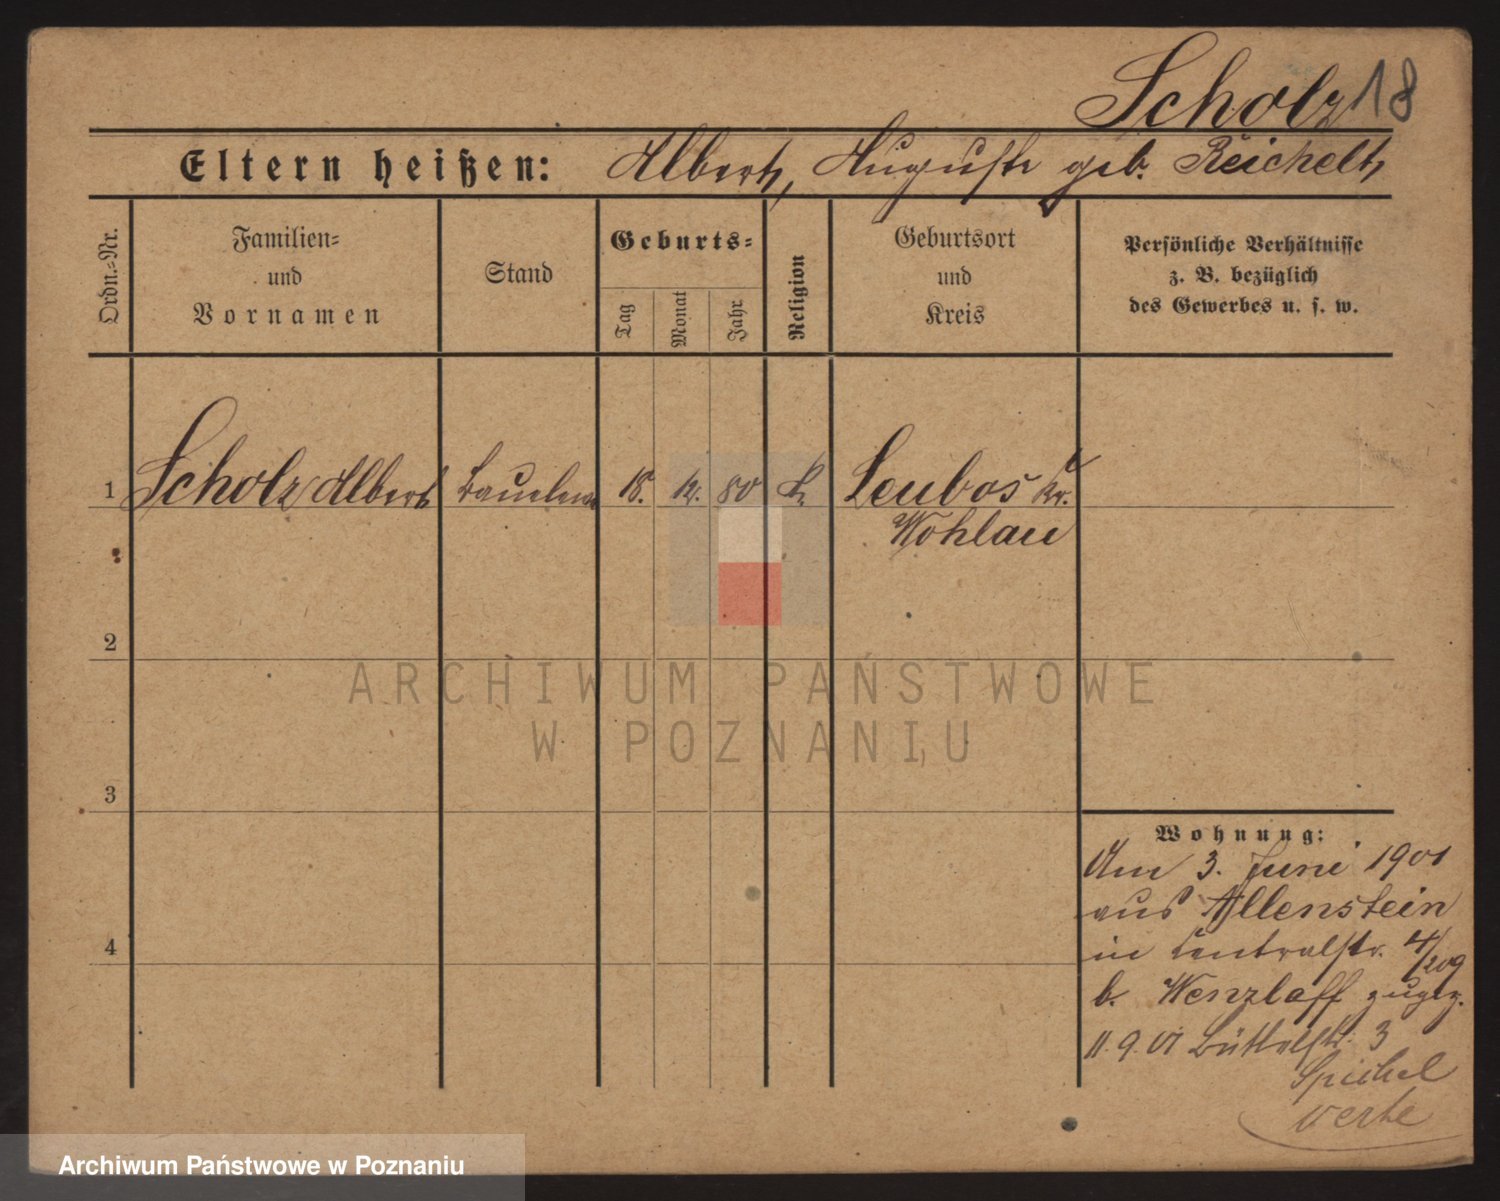 Scholz 18
Eltern heißen: Albert, Auguste geb. Reichelt,
Ordn.=Nr.
Familien=
und
Vornamen
Stand
Geburts=
Tag
Monat
Jahr
Religion
Geburtsort
und
Kreis
Persönliche Verhältnisse
z. B. bezüglich
des Gewerbes u. s. w.
1 Scholz Albert 18. 12. 80 k. Leubus Kr.
Wohlau
2
3
4
Wohnung:
Am 3. Juni 1901
aus Allenstein
in Centralstr. 4/209
b. Wenzlaff zugez.
11. 9. 01 3
ARCHIWUM PAŃSTWOWE
W POZNANIU
Archiwum Państwowe w Poznaniu